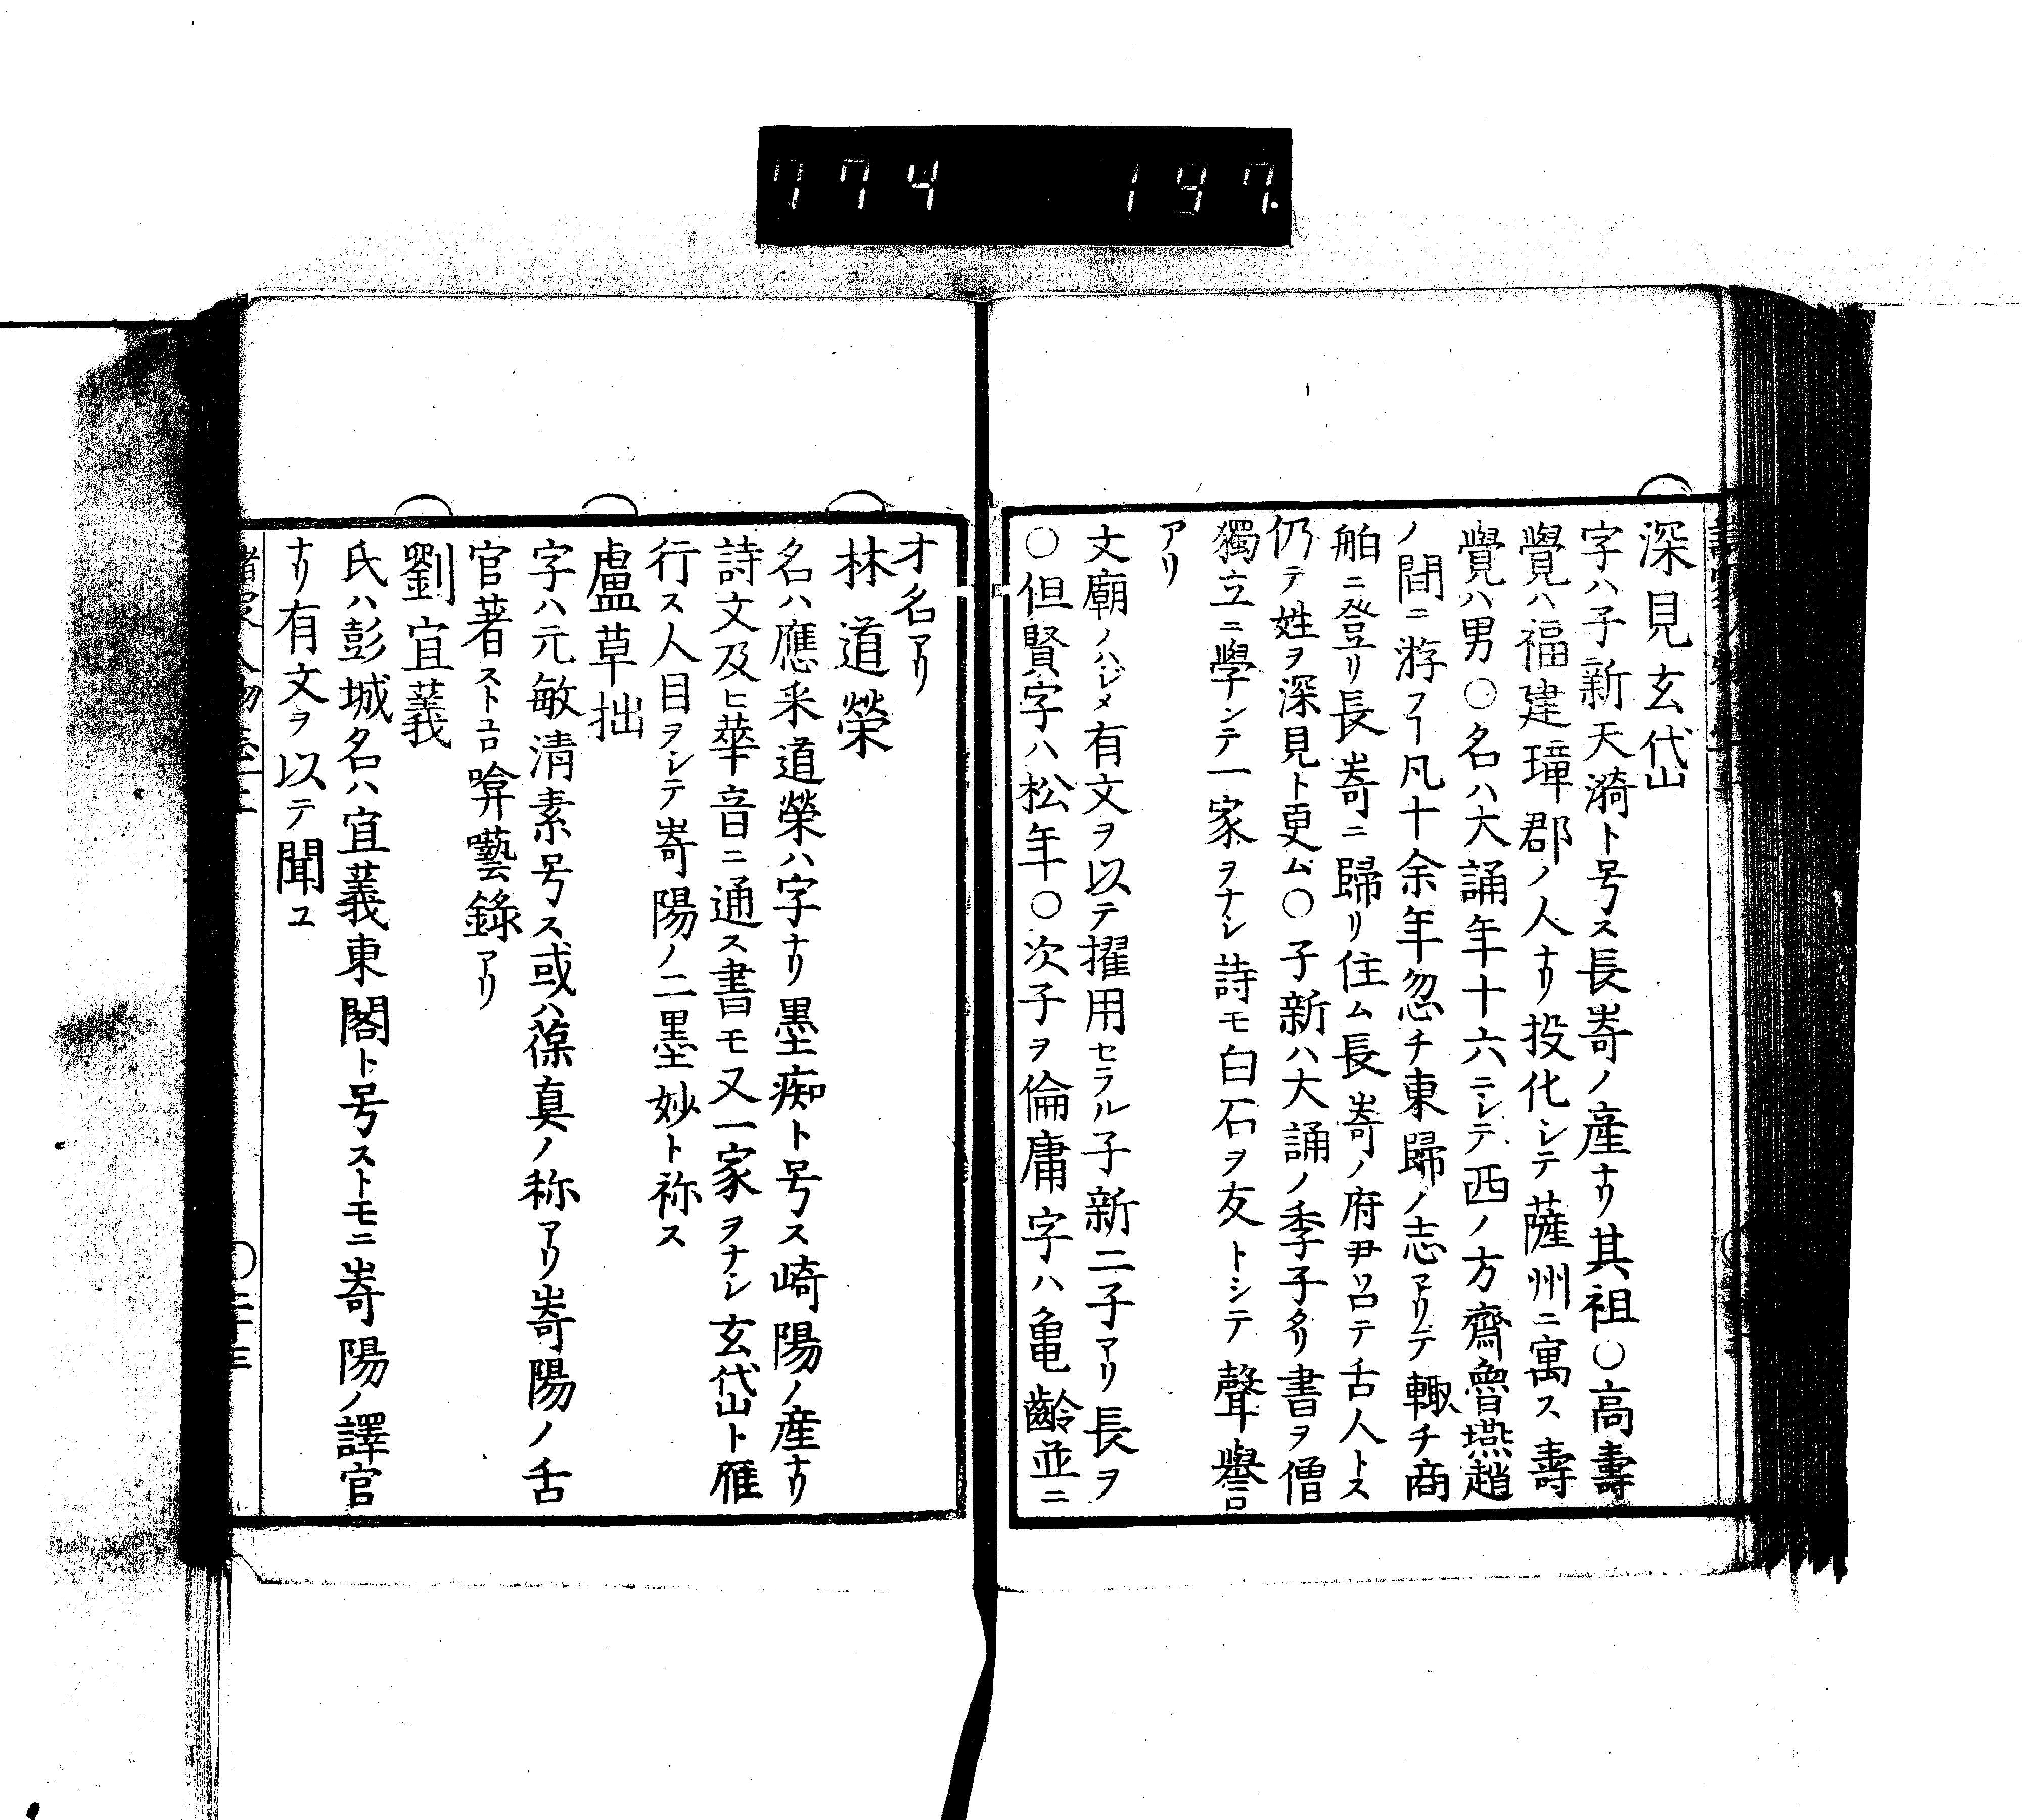 774 197.
深見玄岱
字ハ子新天漪ト号ス長嵜ノ產ナリ其祖〇高壽
覺ハ福建璋郡ノ人ナリ投化シテ薩州ニ寓ス壽
覺ハ男〇名ハ大誦年十六ニシテ西ノ方齊魯燕趙
ノ間ニ游フヿ凡十余年忽チ東歸ノ志アリテ輙チ商
舶ニ登リ長嵜ニ歸リ住ム長嵜ノ府尹召テ舌人トス
仍テ姓ヲ深見ト更ム〇子新ハ大誦ノ季子ナリ書ヲ僧
獨立ニ學ンテ一家ヲナシ詩モ白石ヲ友トシテ聲譽
アリ
文廟ノハジメ有文ヲ以テ擢用セラル子新二子アリ長ヲ
〇但賢字ハ松年〇次子ヲ倫庸字ハ亀齡並ニ
才名アリ
林道榮
名ハ應釆道榮ハ字ナリ墨痴ト号ス崎陽ノ產ナリ
詩文及ヒ華音ニ通ス書モ又一家ヲナシ玄岱ト雁
行ス人目ヲシテ嵜陽ノ二墨妙ト称ス
盧草拙
字ハ元敏清素号ス或ハ葆真ノ称アリ嵜陽ノ舌
官著ストコロ噲囈錄アリ
劉宜義
氏ハ彭城名ハ宜義東閣ト号ストモニ嵜陽ノ譯官
ナリ有文ヲ以テ聞ユ